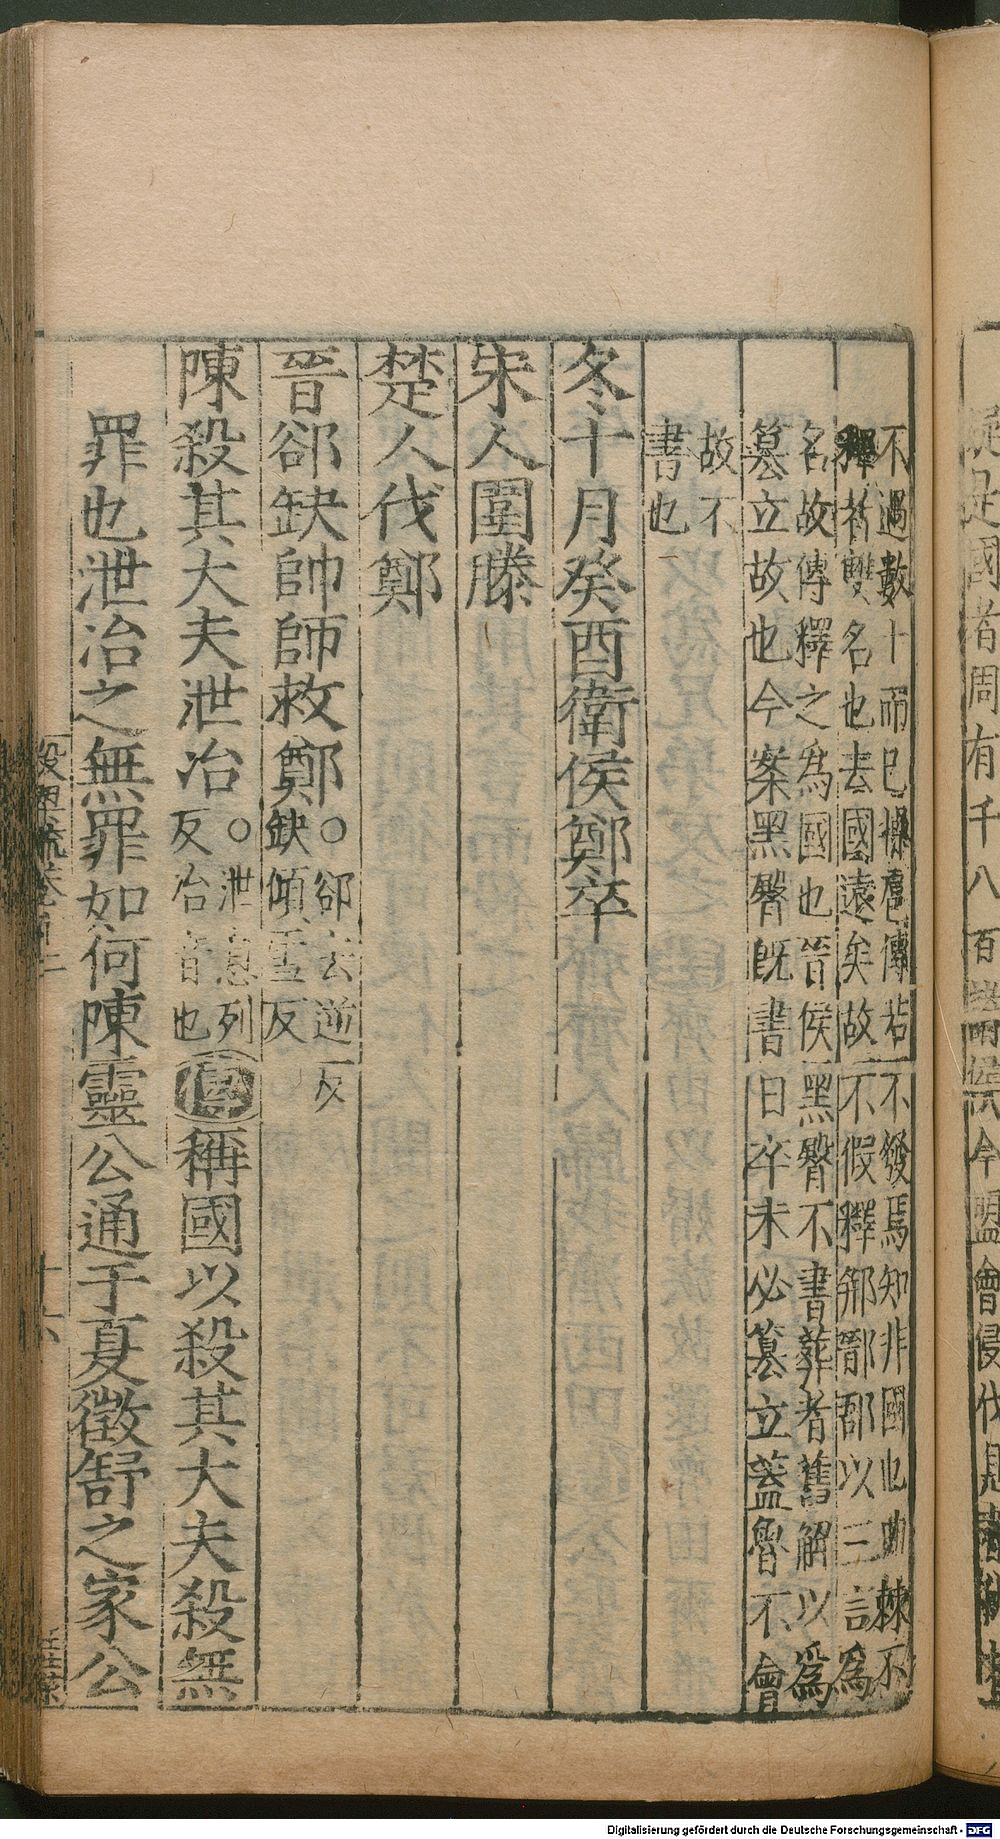 不過數十而已操扈傳若不發焉知非國也 棘不
釋者雙名也去國遠矣故不假釋鄉鄑郡以三言為
名故傳釋之為國也晉侯黑臀不書葬者舊解以為
篡立故也今案黑臀既書日卒未必篡立蓋魯不會
故不
書也
冬十月癸酉衛侯鄭卒
宋人圍滕
楚人伐鄭
晉郤缺帥師救鄭○郤去逆反
缺傾雪反
陳殺其大夫泄冶○泄息列
反冶音也
傳稱國以殺其大夫殺無
罪也泄冶之無罪如何陳靈公通于夏徵舒之家公
十六
疑是國者周有千八百 今盟會侵伐見
Digitalisierung gefördert durch die Deutsche Forschungsgemeinschaft - DFG